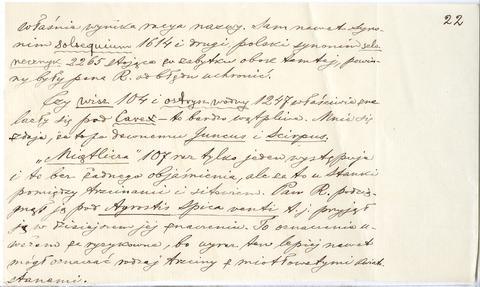 22
właśnie wynika mega nazwy. Sam nawet syno-
nim solsequium 1614 i drugi polski synonim
2265 stojąca w zabytku obok tamtej, powin-
ny były pana R. od błędu uchronić.
Czy wisz 104 i ostrysz wodny 1247 właściwie zna-
lazły się pod Carex - to bardzo wątpliwe. Mnie się
zdaje, że to po dawnemu Juncus i Scirpus.
„Miotlica” 107 raz tylko jeden występuje
i to bez żadnego objaśnienia, ale za to w stancki
pomiędzy trzcinami i sitowiem. Pan R. podcią-
gnął ją pod Agrostis Spica venti t.j. przyjął
ją w dzisiejszem jej znaczeniu. To oznaczenie u-
ważam za ryzykowne, bo wyraz ten lepiej nawet
mógł oznaczać rodzaj trzciny z miotłowatymi kwiat-
stanami.